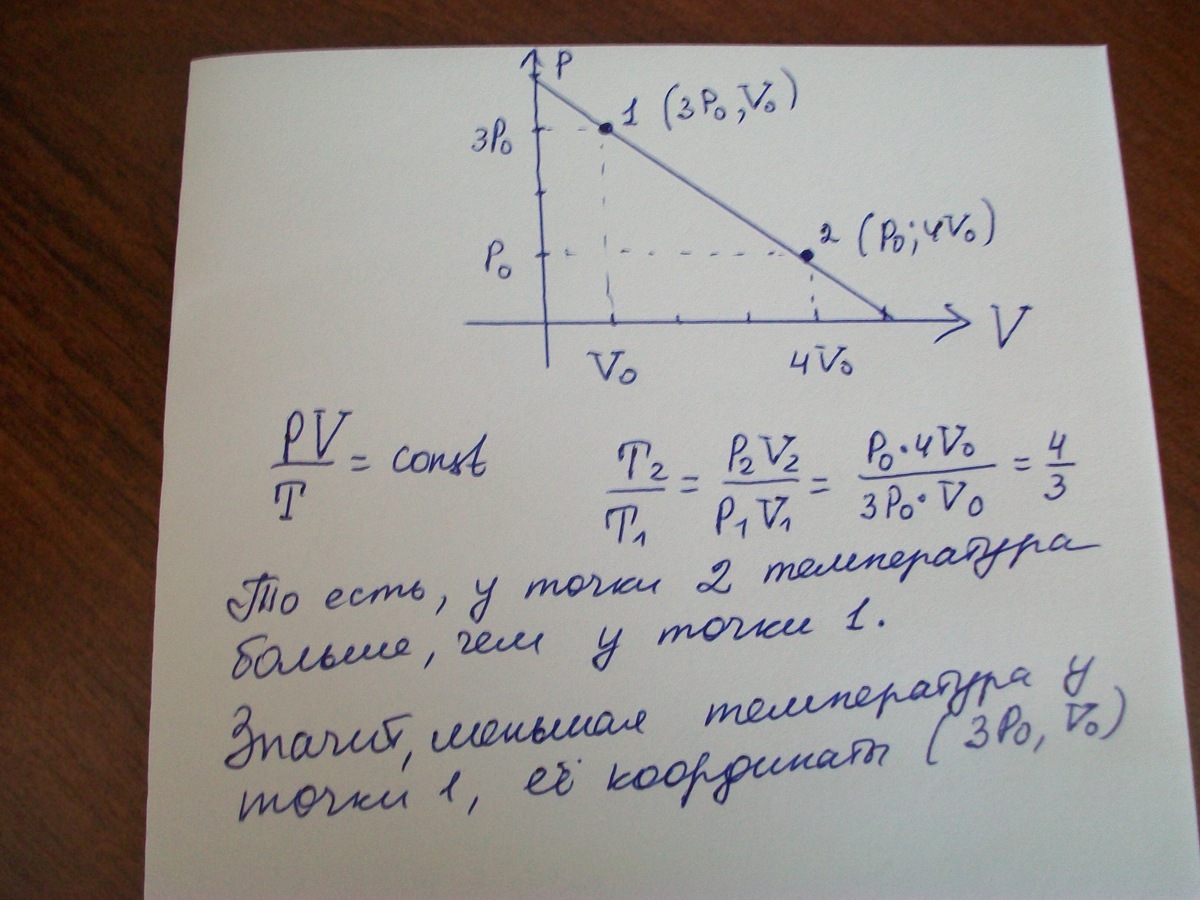 P
1 (3P₀, V₀)
3P₀
2 (P₀; 4V₀)
P₀
V
V₀ 4V₀
PV/T = const T₂/T₁ = P₂V₂/P₁V₁ = P₀·4V₀/3P₀·V₀ = 4/3
То есть, у точки 2 температура
больше, чем у точки 1.
Значит, меньшая температура у
точки 1, её координаты (3P₀, V₀)